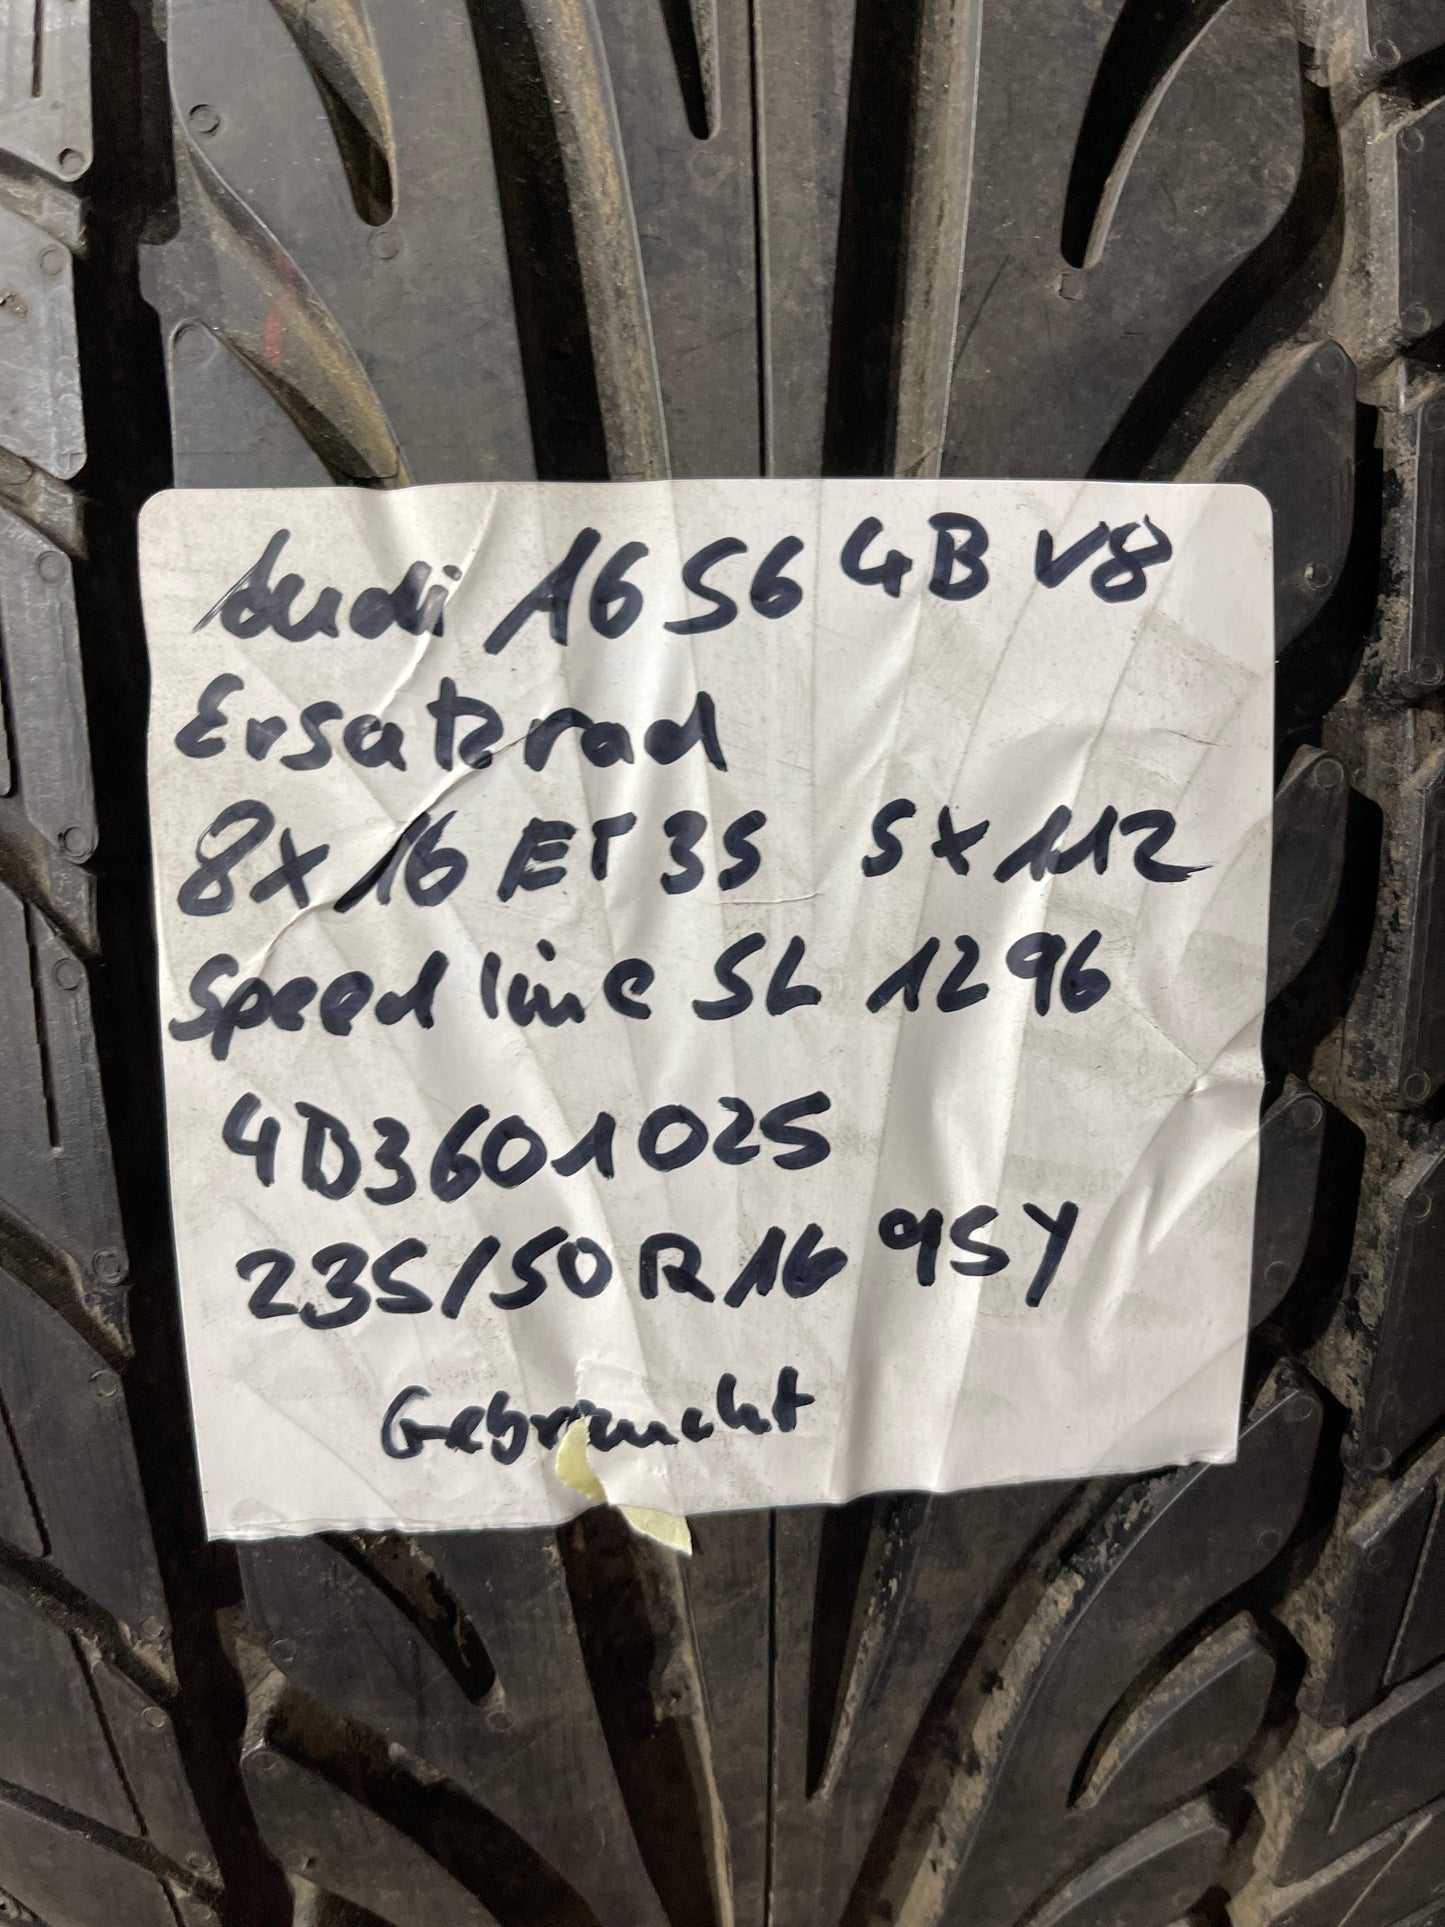 Audi A6 S6 4B V8
Ersatzrad
8x16 ET 35 5x112
Speed line SL 1296
4D3601025
235/50 R16 95Y
Gebraucht